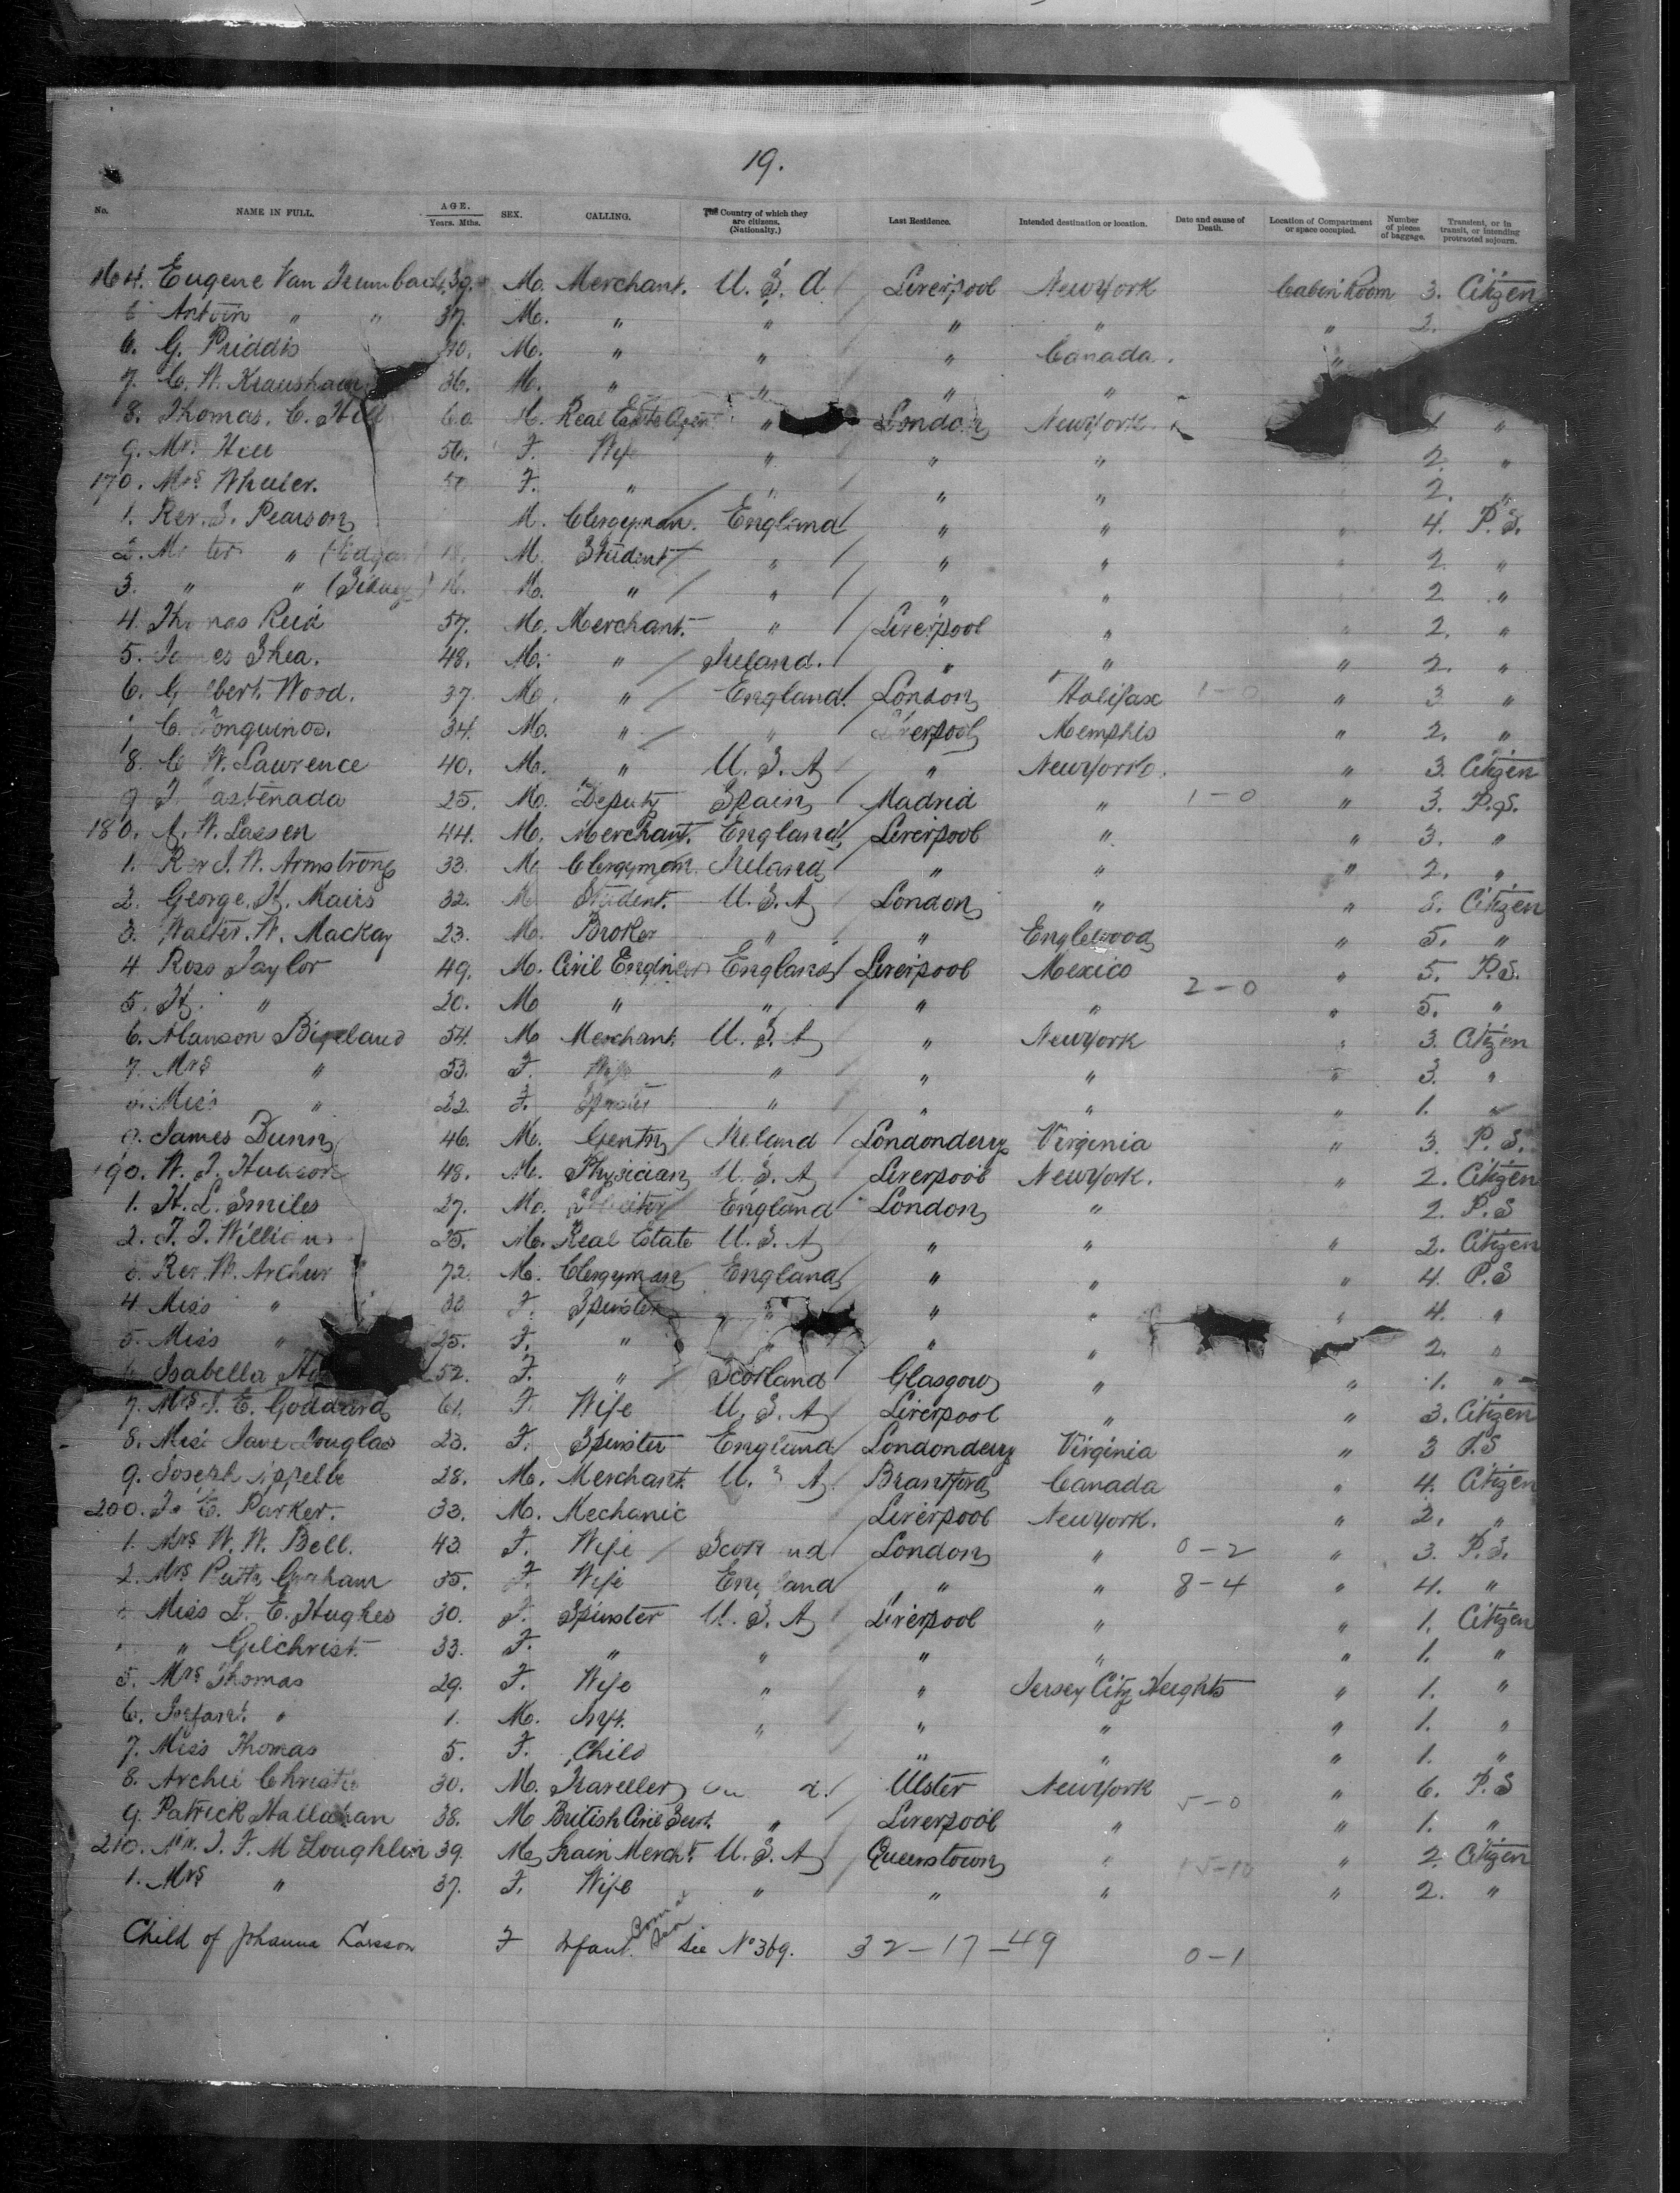 19.
No. NAME IN FULL. AGE. Years. Mths. SEX. CALLING. The Country of which they are citizens. (Nationality.) Last Residence. Intended destination or location. Date and cause of Death. Location of Compartment or space occupied. Number of pieces of baggage. Transient, or in transit, or intending protracted sojourn.
164. Eugene Van 39. M. Merchant. U. S. A Liverpool New York Cabin Room 3. Citizen
Antoin " " 37. M. " " " " " 2.
6. G. Priddis 40. M. " " " Canada. "
7. C. W. 36. M. " " " "
8. Thomas. C. Hill 60. M. Real Estate Agent " London New York. 1 "
9. Mrs Hill 56. F. Wife " " " 2. "
170. Mrs Wheeler. F. " " " " 2. "
1. Rev. J. Pearson M. Clergyman. England " " 4. P. S.
2. " (Edgar M. Student " " " 2. "
3. " " (Sidney) 16. M. " " " " 2. "
4. Reid 57. M. Merchant. " Liverpool " 2. "
5. James Shea. 48. M. " Ireland. " " " 2. "
6. Wood. 37. M. " England. London Halifax 1-0 " 3 "
C. 34. M. " " Liverpool Memphis " 2. "
8. C W. Lawrence 40. M. " U. S. A " New York. " 3. Citizen
9 25. M. Deputy Spain Madrid " 1-0 " 3. P.S.
180. A. W. Lassen 44. M. Merchant. England Liverpool " " 3. "
1. Rev J. W. Armstrong 33. M Clergyman. Ireland " " " 2. "
2. George. H. Mairs 32. M Student. U. S. A London " " 8. Citizen
3. Walter. W. Mackay 23. M. Broker " " Englewood " 5. "
4 Ross Taylor 49. M. Civil Engineer England Liverpool Mexico 2-0 " 5. P.S.
5. H. " 20. M " " " " " 5. "
6. Alanson 54. M Merchant. U. S. A " New York " 3. Citizen
7. Mrs " 53. F. Wife " " " " 3. "
Miss " 22. F. Spinster " " " " 1. "
9. James Dunn 46. M. Gentn Ireland Londonderry Virginia " 3. P. S.
190. W. J. 48. M. Physician U. S. A Liverpool New York. " 2. Citizen
1. H. L. Smiles 27. M. England London " 2. P.S
2. J. J. 25. M. Real Estate U. S. A " " " 2. Citizen
Rev. W. Arthur 72. M. Clergyman England " " " 4. P.S
4 Miss " F. Spinster " " " " 4. "
5. Miss " 25. F. " " " 2. "
Isabella 52. F. " Scotland Glasgow " " 1. "
7. Mrs J. E. Goddard 61. F. Wife U. S. A Liverpool " " 3. Citizen
8. Miss Jane Douglas 23. F. Spinster England Londonderry Virginia " 3 P.S
9. Joseph 28. M. Merchant. U. S A. Brantford Canada " 4. Citizen
200. E. Parker. 33. M. Mechanic Liverpool New York. " 2. "
1. Mrs W. W. Bell. 43 F. Wife London " 0-2 " 3. P.S.
2. Mrs Graham 35. F. Wife England " " 8-4 " 4. "
Miss L. E. Hughes 30. F. Spinster U. S. A Liverpool " " 1. Citizen
" Gilchrist. 33. F. " " " " " 1. "
5. Mrs Thomas 29. F. Wife " " Jersey City Heights " 1. "
6. Infant. " 1. M. Inft. " " " " 1. "
7. Miss Thomas 5. F. Child " " " 1. "
8. Archie 30. M. Traveller Ulster New York 5-0 " 6. P.S
9. Patrick Hallahan 38. M British Civil Servt. " Liverpool " " 1. "
210. Mr. J. F. McLoughlin 39 M Grain Mercht. U. S. A Queenstown " 15-10 " 2. Citizen
1. Mrs " 37. F. Wife " " " " 2. "
Child of Johanna Larsson F Infant. Born at Sea See No 369. 32-17-49 0-1